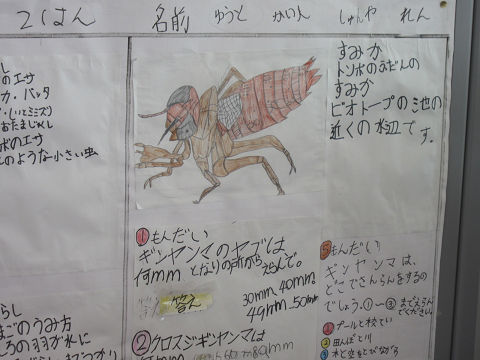 2くはん 名前 ゆうと かい人 しゅんや れん
し
のエサ
カ・バッタ
(いとミミズ)
おたまじゃくし
ボのエサ
のような小さい虫
すみか
トンボのふだんの
すみか
ビオトープの池の
近くの水辺です。
①もんだい
ギンヤンマのヤゴは
何mm となりの中からえらんで。
答え
30mm、40mm、
49mm、50mm
②クロスジギンヤンマは
らし
まごのうみ方
ころの羽が水に
⑤もんだい
ギンヤンマは、
どこでさんらんをするの
でしょう。①〜③までえらん
でください。
①プールと校てい
②田んぼと川
③水と空をとびながら